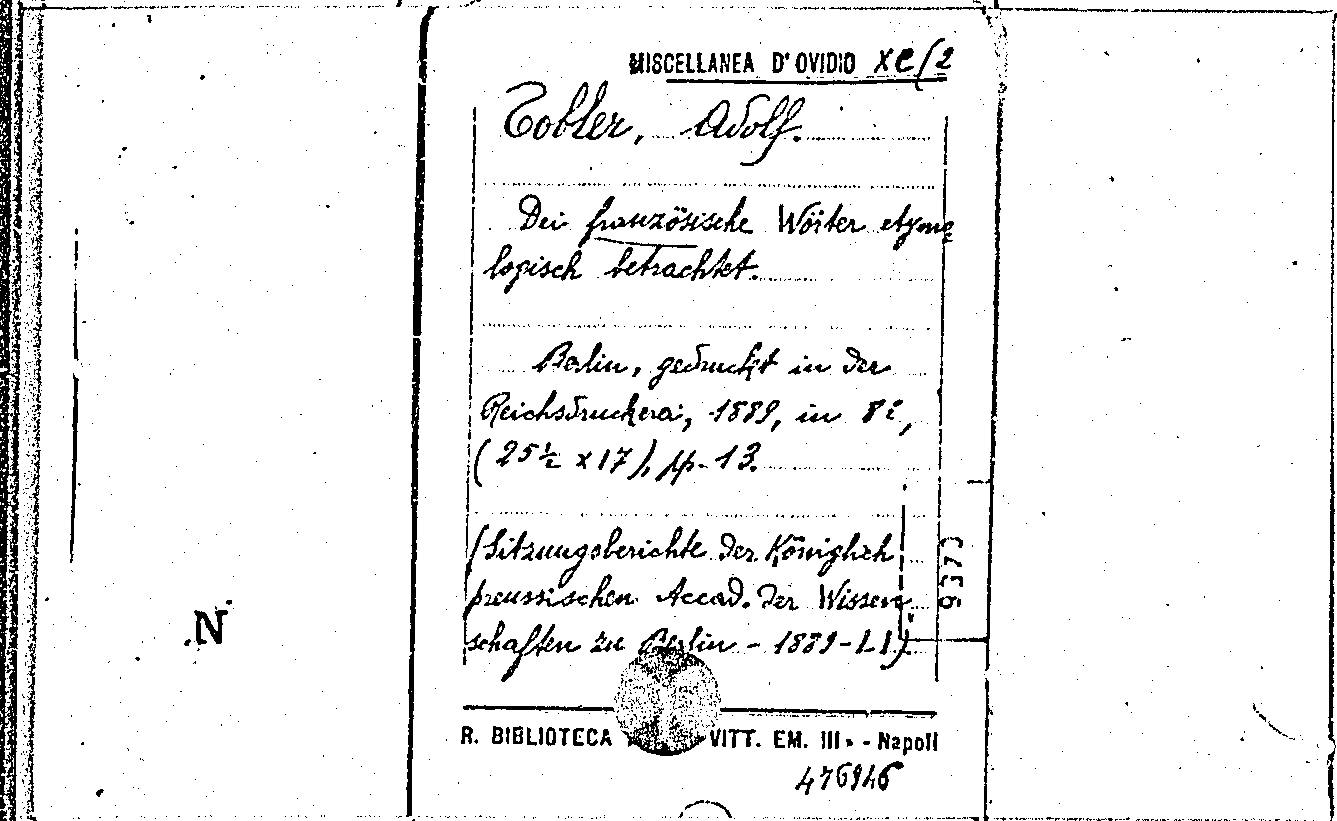 MISCELLANEA D'OVIDIO XC/2
Tobler, Adolf.
Dei französische Wörter etymo
logisch betrachtet.
Berlin, gedruckt in der
Reichsdruckerei, 1889, in 8º,
(25½ x 17), pp. 13.
(Sitzungsberichte der Königlich
preussischen Accad. der Wissen
schaften zu Berlin - 1889-LI).
9373
N
R. BIBLIOTECA VITT. EM. III - Napoli
476946